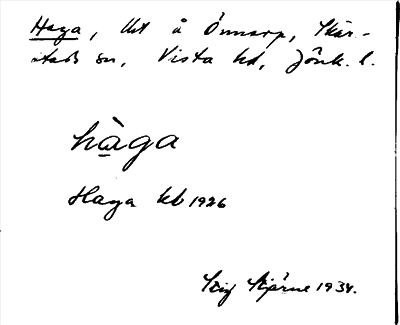 Haga, tt å Önnarp, Skär-
stads sn, Vista hd, Jönk. l.
hàga
Haga kb 1926
Stig Stjärne 1934.